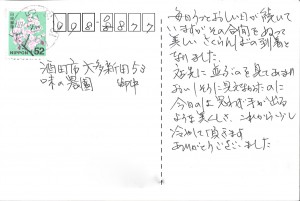 NIPPON 52
酒田市大多新田53
味の農園 御中
毎日うっとおしい日が続いて
いますが その合間をぬって
美しいさくらんぼの到着と
なりました。
店先に並ぶのを見てあまり
おいしそうに見えなかったのに
今日のは思わず手が出る
ような美しさ、これから少し
冷やして頂きます
ありがとうございました